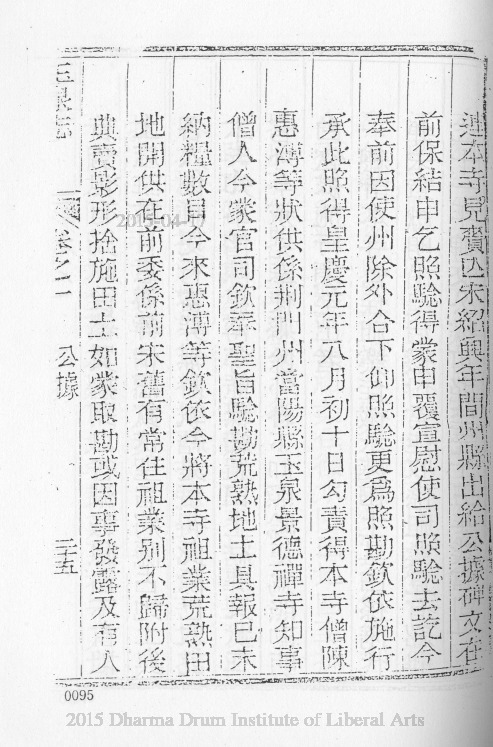 連本寺見賫亾宋紹興年間州縣出給公據碑文在
前保結申乞照驗得蒙申覆宣慰使司照驗去訖今
奉前因使州除外合下仰照驗更為照勘欽依施行
承此照得皇慶元年八月初十日勾責得本寺僧陳
惠溥等狀供係荆門州當陽縣玉泉景德禪寺知事
僧人今蒙官司欽奉聖旨驗勘荒熟地土具報已未
納糧數目今來惠溥等欽依今將本寺祖業荒熟田
地開供在前委係前宋舊有常住祖業別不歸附後
典賣影形捨施田土如蒙取勘或因事發露及有人
玉泉志 卷之一 公據 二十五
2015
0095
2015 Dharma Drum Institute of Liberal Arts